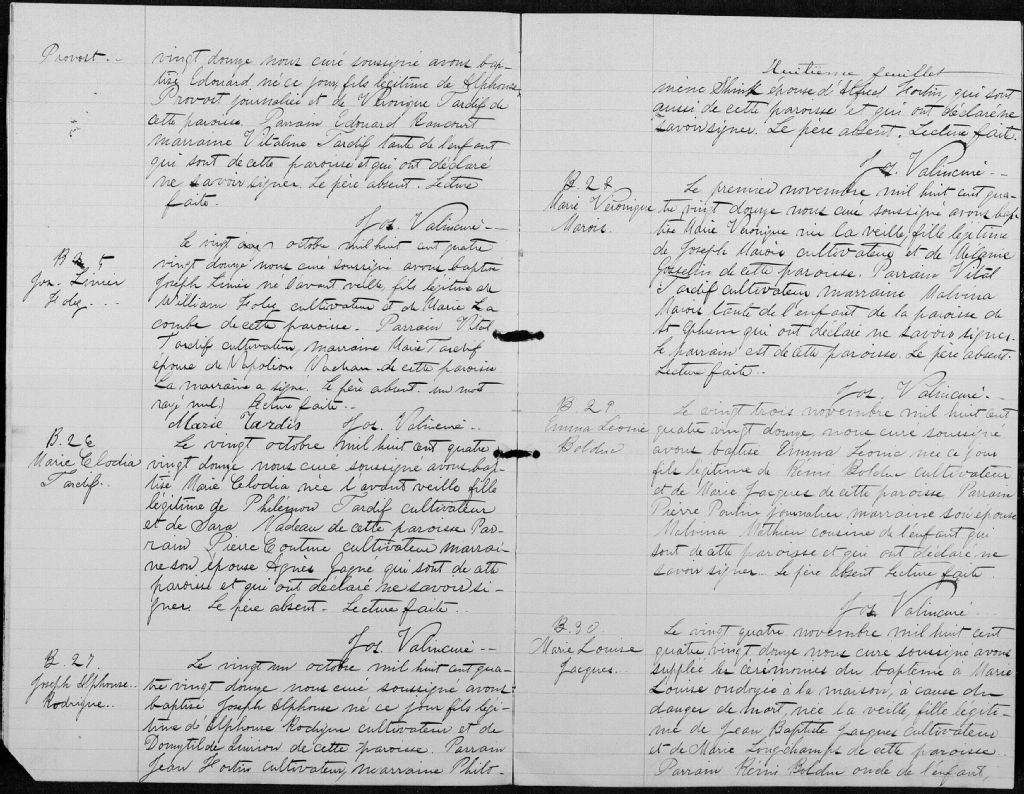 Provost
vingt douze nous curé soussigné avons bap-
tisé Edouard né ce jour, fils légitime de Alphonse
Provost journalier et de Véronique Tardif de
cette paroisse. Parrain Edouard Rancourt
marraine Vitaline Tardif tante de l'enfant
qui sont de cette paroisse et qui ont déclaré
ne savoir signer. Le père absent. Lecture
faite.
Jos. Valin curé
B. 25
Jos. Linier
Foley
Le vingt octobre mil huit cent quatre
vingt douze nous curé soussigné avons baptisé
Joseph Linier né l'avant veille, fils légitime de
William Foley cultivateur et de Marie La
combe de cette paroisse. Parrain Vital
Tardif cultivateur, marraine Marie Tardif
épouse de Napoléon Vachon de cette paroisse
La marraine a signé. Le père absent. un mot
rayé nul.) Lecture faite.
Marie Tardif Jos. Valin curé
B. 26
Marie Clodia
Tardif
Le vingt octobre mil huit cent quatre
vingt douze nous curé soussigné avons bap-
tisé Marie Clodia née l'avant veille fille
légitime de Philémon Tardif cultivateur
et de Sara Nadeau de cette paroisse Par-
rain Pierre Couture cultivateur marrai-
ne son épouse Agnès Gagné qui sont de cette
paroisse et qui ont déclaré ne savoir si-
gner. Le père absent. Lecture faite.
Jos. Valin curé
B. 27.
Joseph Alphonse
Rodrigue
Le vingt un octobre mil huit cent qua-
tre vingt douze nous curé soussigné avons
baptisé Joseph Alphonse né ce jour fils légi-
time d'Alphonse Rodrigue cultivateur et de
Domytilde de cette paroisse. Parrain
Jean Fortin cultivateur, marraine Philo-
Huitième feuillet
mène épouse d'Alfred Fortin, qui sont
aussi de cette paroisse et qui ont déclaré ne
savoir signer. Le père absent. Lecture faite.
Jos. Valin curé
B. 28
Marie Véronique
Marois
Le premier novembre mil huit cent qua-
tre vingt douze nous curé soussigné avons bap-
tisé Marie Véronique née la veille, fille légitime
de Joseph Marois cultivateur et de Mélanie
Gosselin de cette paroisse. Parrain Vital
Tardif cultivateur marraine Malvina
Marois tante de l'enfant de la paroisse de
St Ephrem qui ont déclaré ne savoir signer.
Le parrain est de cette paroisse. Le père absent
Lecture faite.
Jos. Valin curé
B. 29
Emma Leonie
Bolduc
Le vingt trois novembre mil huit cent
quatre vingt douze, nous curé soussigné
avons baptisé Emma Leonie née ce jour
fils légitime de Rémi Bolduc cultivateur
et de Marie Jacques de cette paroisse. Parrain
Pierre Poulin journalier marraine son épouse
Malvina Mathieu cousine de l'enfant qui
sont de cette paroisse et qui ont déclaré ne
savoir signer. Le père absent Lecture faite.
Jos. Valin curé
B. 30.
Marie Louise
Jacques
Le vingt quatre novembre mil huit cent
quatre vingt douze nous curé soussigné avons
supplée les cérémonies du baptème à Marie
Louise ondoyée à la maison, à cause du
danger de mort, née la veille, fille légiti-
me de Jean Baptiste Jacques cultivateur
et de Marie Longchamps de cette paroisse.
Parrain Rémi Bolduc oncle de l'enfant,